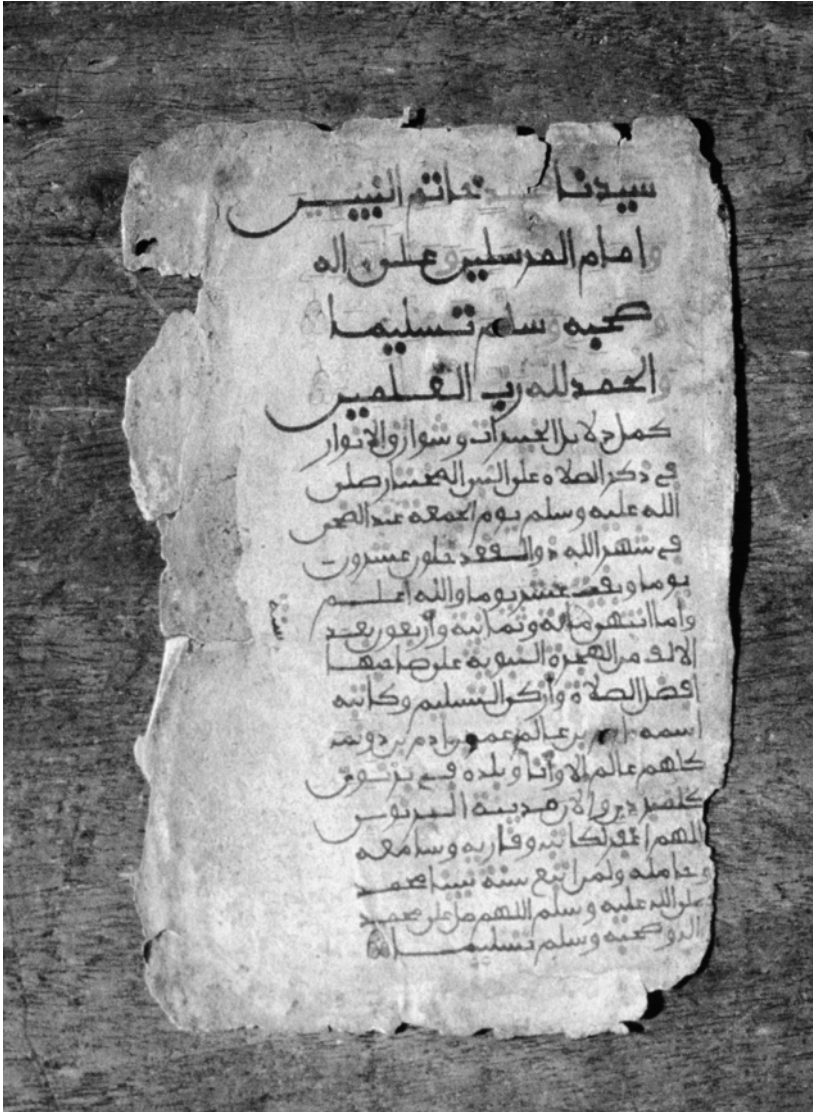 سيدنا خاتم النبيين
وامام المرسلين وعلى اله
و صحبه و سلم تسليما
و الحمد لله رب العلمين
كمل دلايل الخيرات و شوارق الانوار
في ذكر الصلاة على النبي المختار صلى
الله عليه و سلم يوم الجمعة عند الضحى
في شهر الله ذو القعد خلون عشرون
يوما و بقت عشر يوما والله اعلم
سنة
واما انتهى مائة و ثمانية و أربعون بعد
الالف من الهجرة النبوية على صاحبها
افضل الصلاة و أزكى التسليم و كاتبه
اسمه بن عالم عمر ادم بن
كلهم عالم الا و أنا و بلده في برنوس
مدينة البرنوس
اللهم اغفر لكاتبه و قاريه و سامعه
و حامله و لمن اتبع سنة نبينا محمد
صلى الله عليه و سلم اللهم صل على محمد
اله و صحبه و سلم تسليما